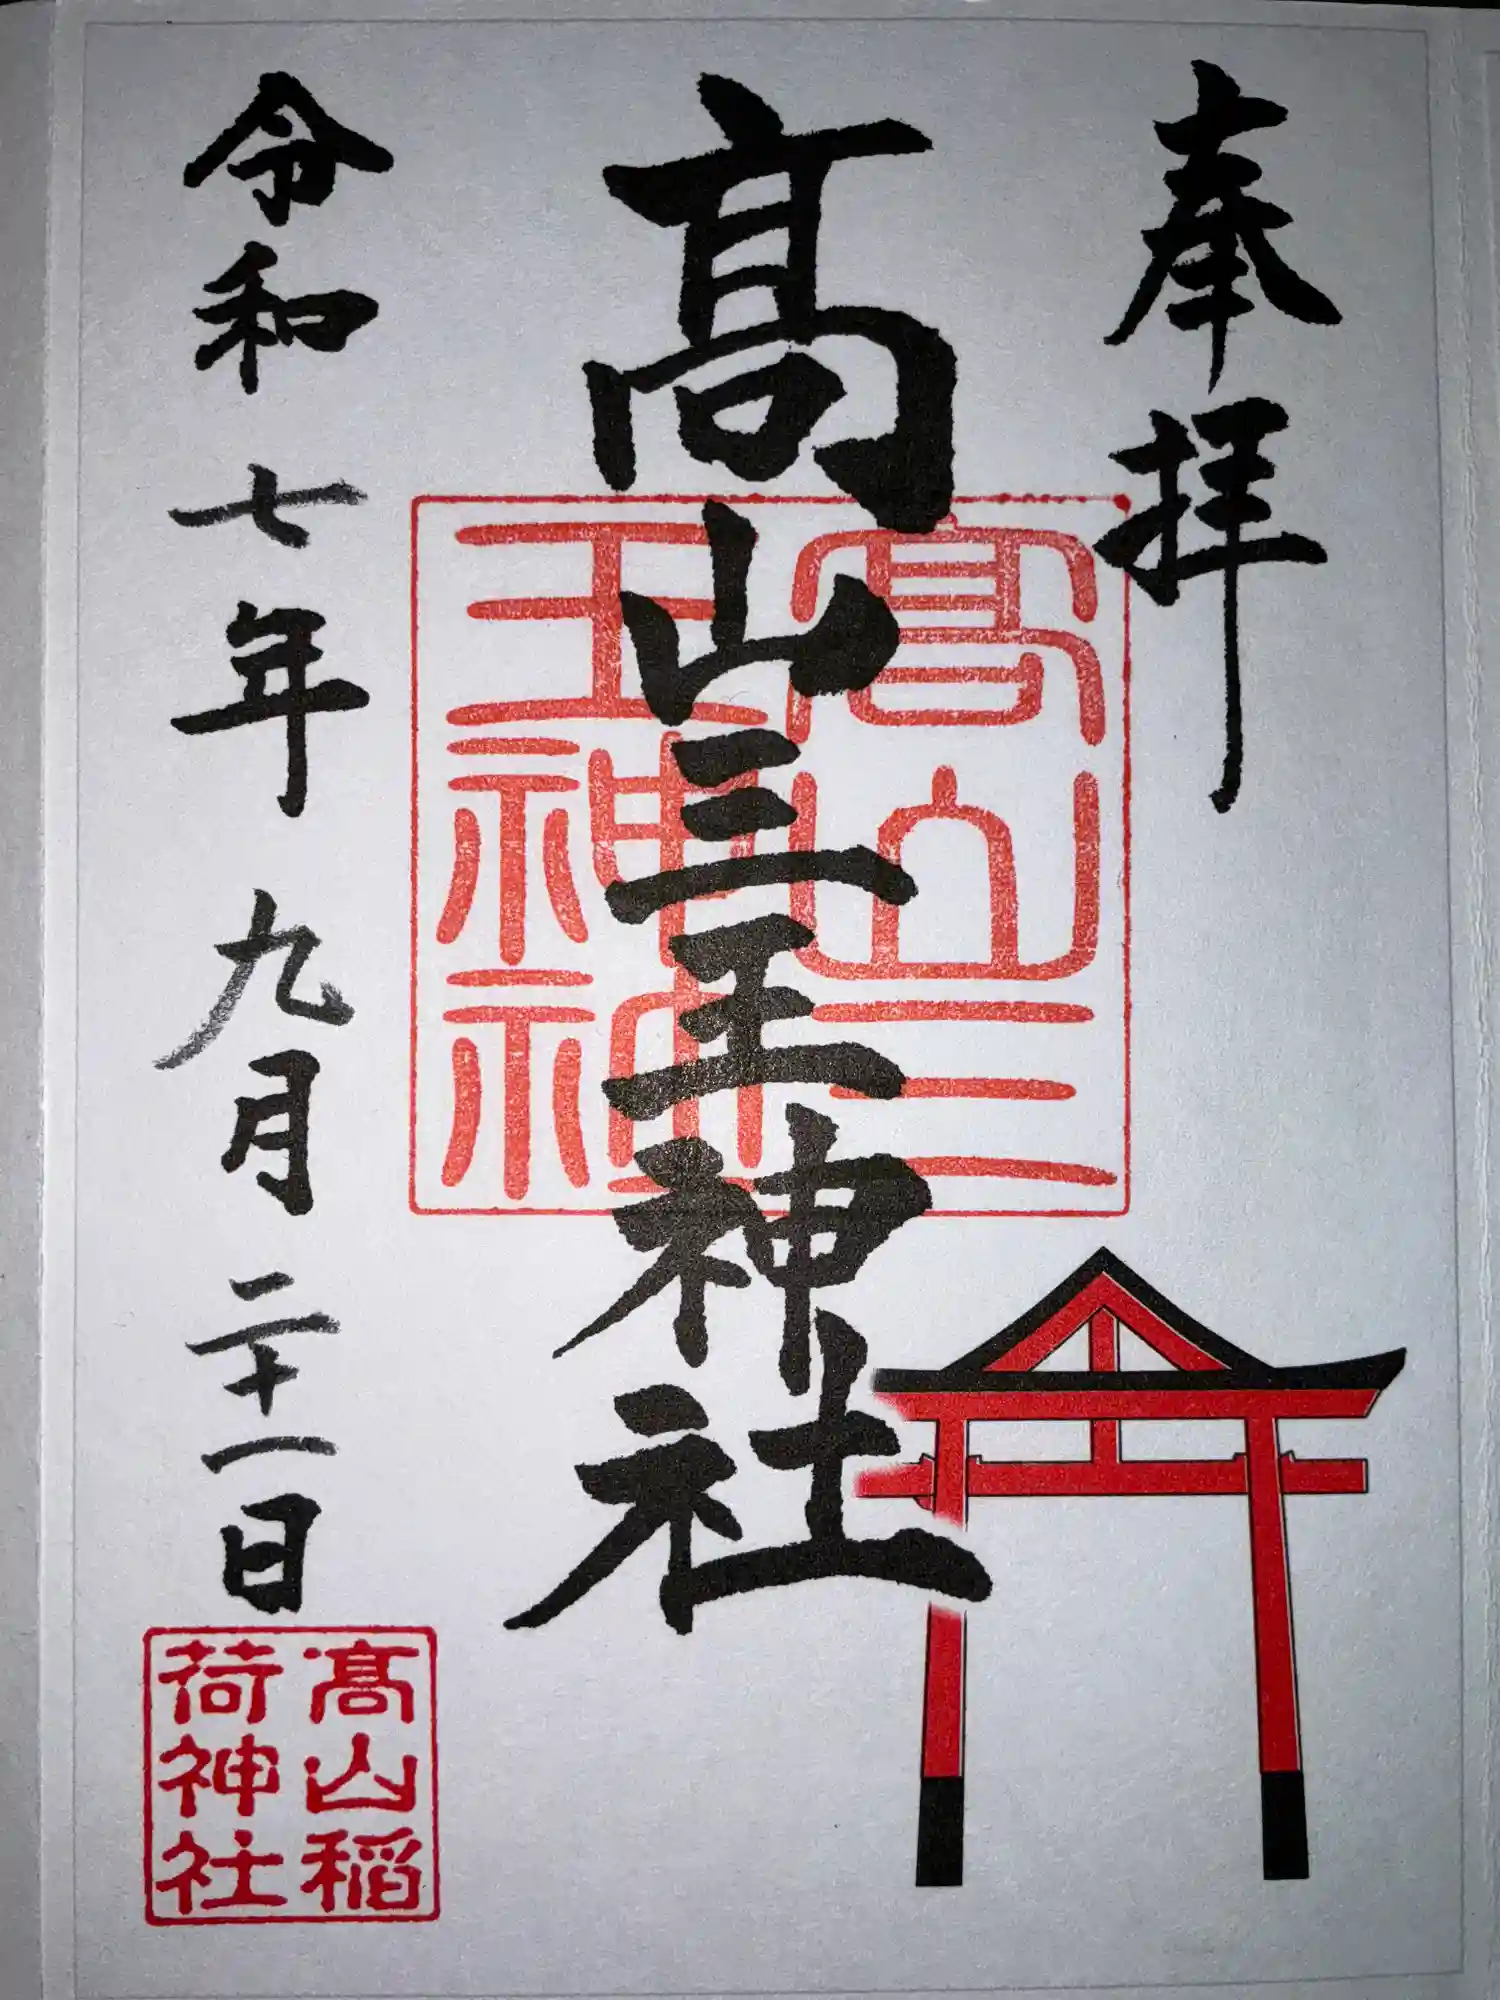 奉拝
髙山三王神社
髙山三
王神社
令和七年九月二十一日
髙山稲
荷神社